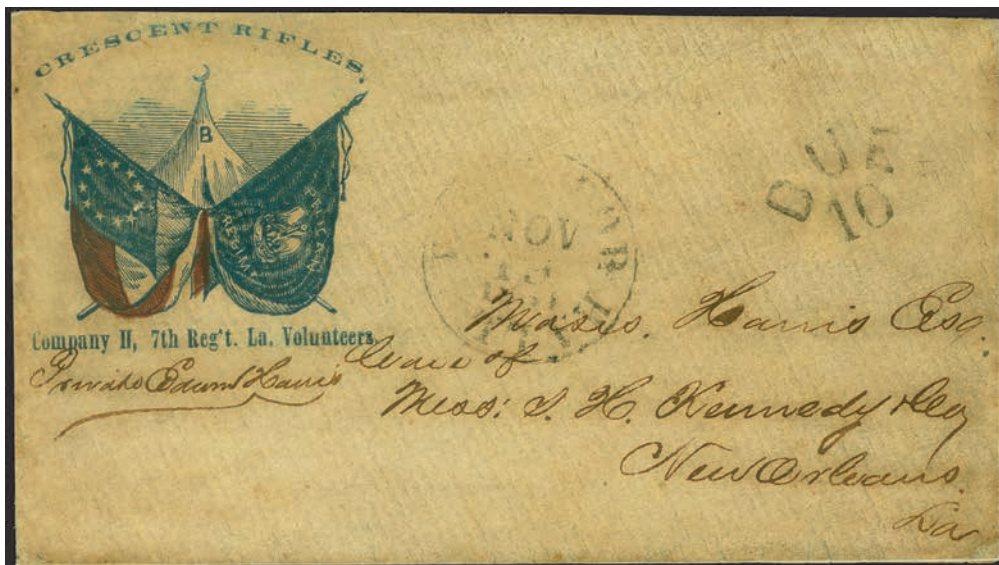 CRESCENT RIFLES,
B
PELICAN
REGIM
Company H, 7th Reg't. La. Volunteers
Private Edwd Harris
NOV
DUE
10
Moses. Harris Esq.
Care of
Mess: S. H. Kennedy & Co
New Orleans.
La